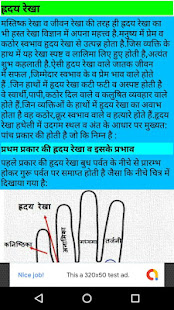 हृदय रेखा
मस्तिष्क रेखा व जीवन रेखा की तरह ही हृदय रेखा का
भी हस्त रेखा विज्ञान में अपना महत्त्व है.मनुष्य में प्रेम व
कठोर स्वभाव हृदय रेखा से उत्पन्न होता है.जिस व्यक्ति के
हाथ में यह रेखा स्पष्ट व लालिमा लिए हुए होती है,अत्यंत
शुभ कहलाती है.ऐसी हृदय रेखा वाले जातक जीवन
में सफल ,जिम्मेदार स्वभाव के व प्रेम भाव वाले होते
है .जिन हाथों में हृदय रेखा कटी फटी व अस्पष्ट होती है
वे स्वार्थी,पापी,कठोर दिल वाले व कलुषित व्यवहार वाले
होते हैं.जिन व्यक्तीओं के हाथों में हृदय रेखा का अभाव
होता है वह कठोर,क्रूर स्वभाव वाले व हत्यारे होते हैं.हृदय
रेखा हथेली में उदगम स्थल व अंत के आधार पर मुख्यत:
पांच प्रकार की होती है जो कि निम्न है :
प्रथम प्रकार की हृदय रेखा व इसके प्रभाव
पहले प्रकार की हृदय रेखा बुध पर्वत के नीचे से प्रारम्भ
होकर गुरु पर्वत पर समाप्त होती है जैसा कि नीचे चित्र में
दिखाया गया है:
हृदय रेखा
कनिष्ठिका
अनामिका
मध्यमा
तर्जनी
Nice job!
This is a 320x50 test ad.